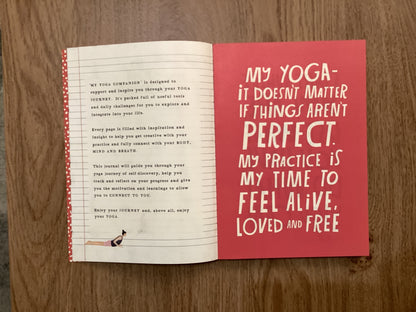 'MY YOGA COMPANION' is designed to
support and inspire you through your YOGA
JOURNEY. It's packed full of useful tools
and daily challenges for you to explore and
integrate into your life.
Every page is filled with inspiration and
insight to help you get creative with your
practice and fully connect with your BODY,
MIND AND BREATH.
This journal will guide you through your
yoga journey of self discovery, help you
track and reflect on your progress and give
you the motivation and learnings to allow
you to CONNECT TO YOU.
Enjoy your JOURNEY and, above all, enjoy
your YOGA.
MY YOGA-
iT DOESN'T MATTER
IF THINGS AREN'T
PERFECT.
MY PRACTICE iS
MY TIME TO
FEEL ALIVE,
LOVED AND FREE